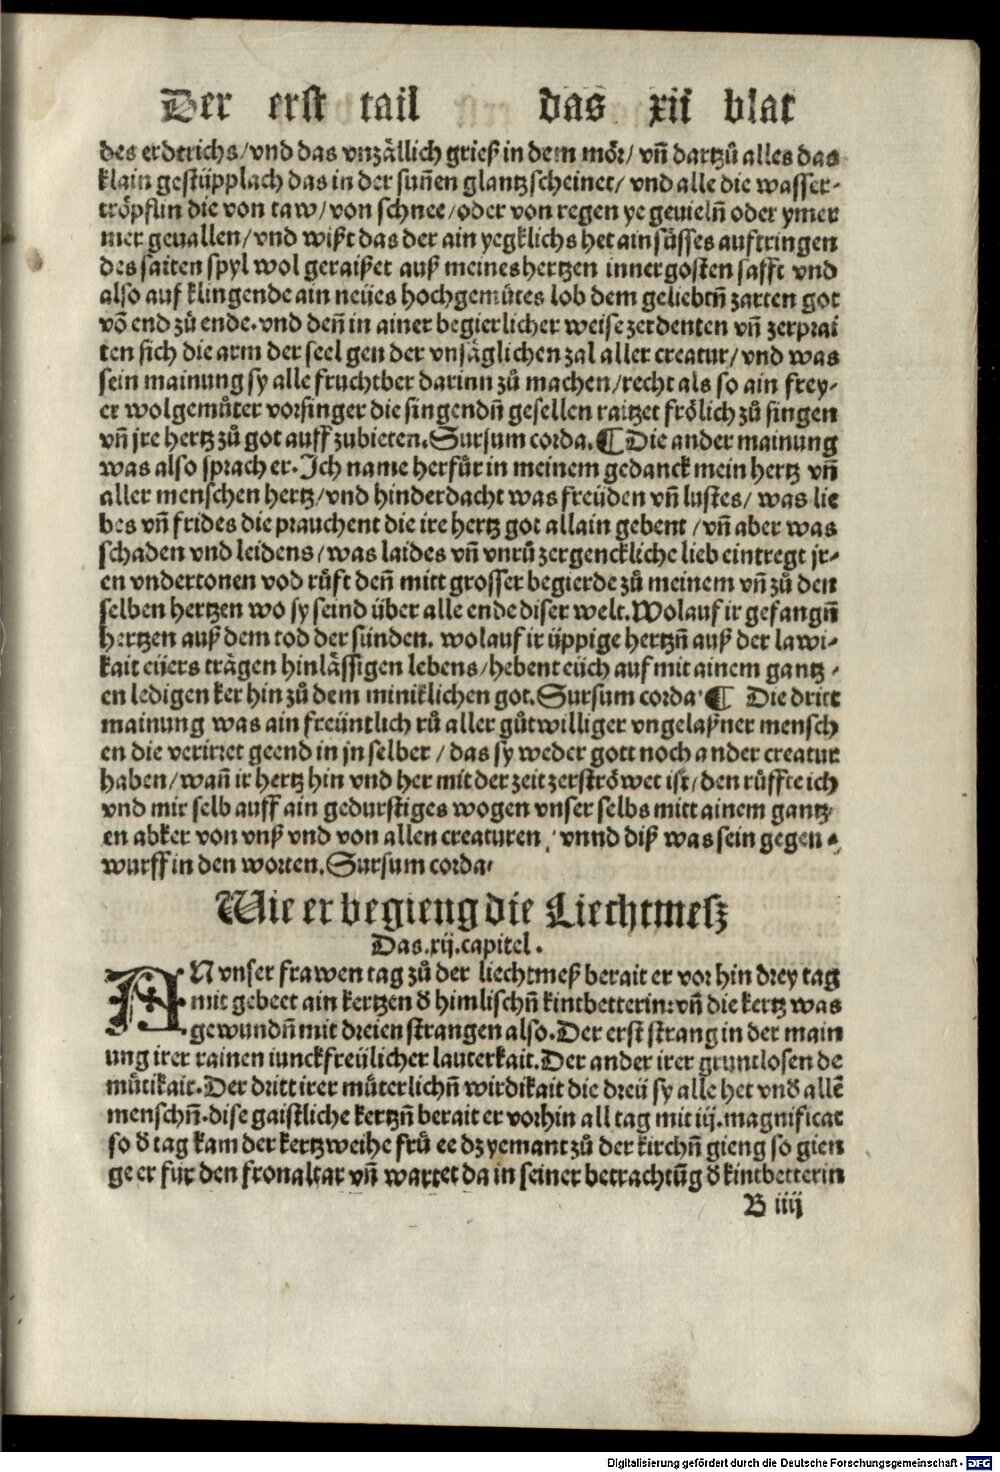 Der erst tail das xii blat
des erdtrichs/vnd das vnzällich grieß in dem mör/ vn̄ dartzů alles das
klain gestüpplach das in der sun̄en glantz scheinet/ vnd alle die wasser-
tröpflin die von taw/von schnee/oder von regen ye geuieln̄ oder ymer
mer geuallen/vnd wißt das der ain yegklichs het ain süsses auftringen
des saiten spyl wol geraißet auß meines hertzen innergosten safft vnd
also auf klingende ain neües hochgemütes lob dem geliebtn̄ zarten got
vō end zů ende.vnd den̄ in ainer begierlicher weise zerdenten vn̄ zerprai
ten sich die arm der seel gen der vnsäglichen zal aller creatur/vnd was
sein mainung sy alle fruchtber darinn zů machen/recht als so ain frey-
er wolgemůter vorsinger die singendn̄ gesellen raitzet frölich zů singen
vn̄ jre hertz zů got auff zubieten.Sursum corda.¶Die ander mainung
was also sprach er.Ich name herfür in meinem gedanck mein hertz vn̄
aller menschen hertz/vnd hinderdacht was freüden vn̄ lustes/ was lie
bes vn̄ frides die prauchent die ire hertz got allain gebent/vn̄ aber was
schaden vnd leidens/was laides vn̄ vnrů zergenckliche lieb eintregt jr-
en vndertonen vod růft den̄ mitt grosser begierde zů meinem vn̄ zů den
selben hertzen wo sy seind über alle ende diser welt.Wolauf ir gefangn̄
hertzen auß dem tod der sünden. wolauf ir üppige hertzn̄ auß der lawi-
kait eüers trägen hinlässigen lebens/hebent eüch auf mit ainem gantz-
en ledigen ker hin zů dem miniklichen got.Sursum corda.¶ Die dritt
mainung was ain freüntlich rů aller gůtwilliger vngelaßner mensch
en die verirret geend in jn selber/das sy weder gott noch ander creatur
haben/wan̄ ir hertz hin vnd her mit der zeit zerströwet ist/den růffte ich
vnd mir selb auff ain gedurstiges wogen vnser selbs mitt ainem gantz
en abker von vnß vnd von allen creaturen, vnnd diß was sein gegen-
wurff in den worten.Sursum corda.
Wie er begieng die Liechtmesz
Das.xij.capitel.
AN vnser frawen tag zů der liechtmeß berait er vor hin drey tag
mit gebeet ain kertzen d himlischn̄ kintbetterin:vn̄ die kertz was
gewundn̄ mit dreien strangen also.Der erst strang in der main
ung irer rainen iunckfreülicher lauterkait.Der ander irer gruntlosen de
mütikait.Der dritt irer müterlichn̄ wirdikait die dreü sy alle het vnd allē
menschn̄.dise gaistliche kertzn̄ berait er vorhin all tag mit iij.magnificat
so d tag kam der kertzweihe frů ee dz yemant zů der kirchn̄ gieng so gien
ge er für den fronaltar vn̄ wartet da in seiner betrachtūg d kintbetterin
B iiij
Digitalisierung gefördert durch die Deutsche Forschungsgemeinschaft - DFG